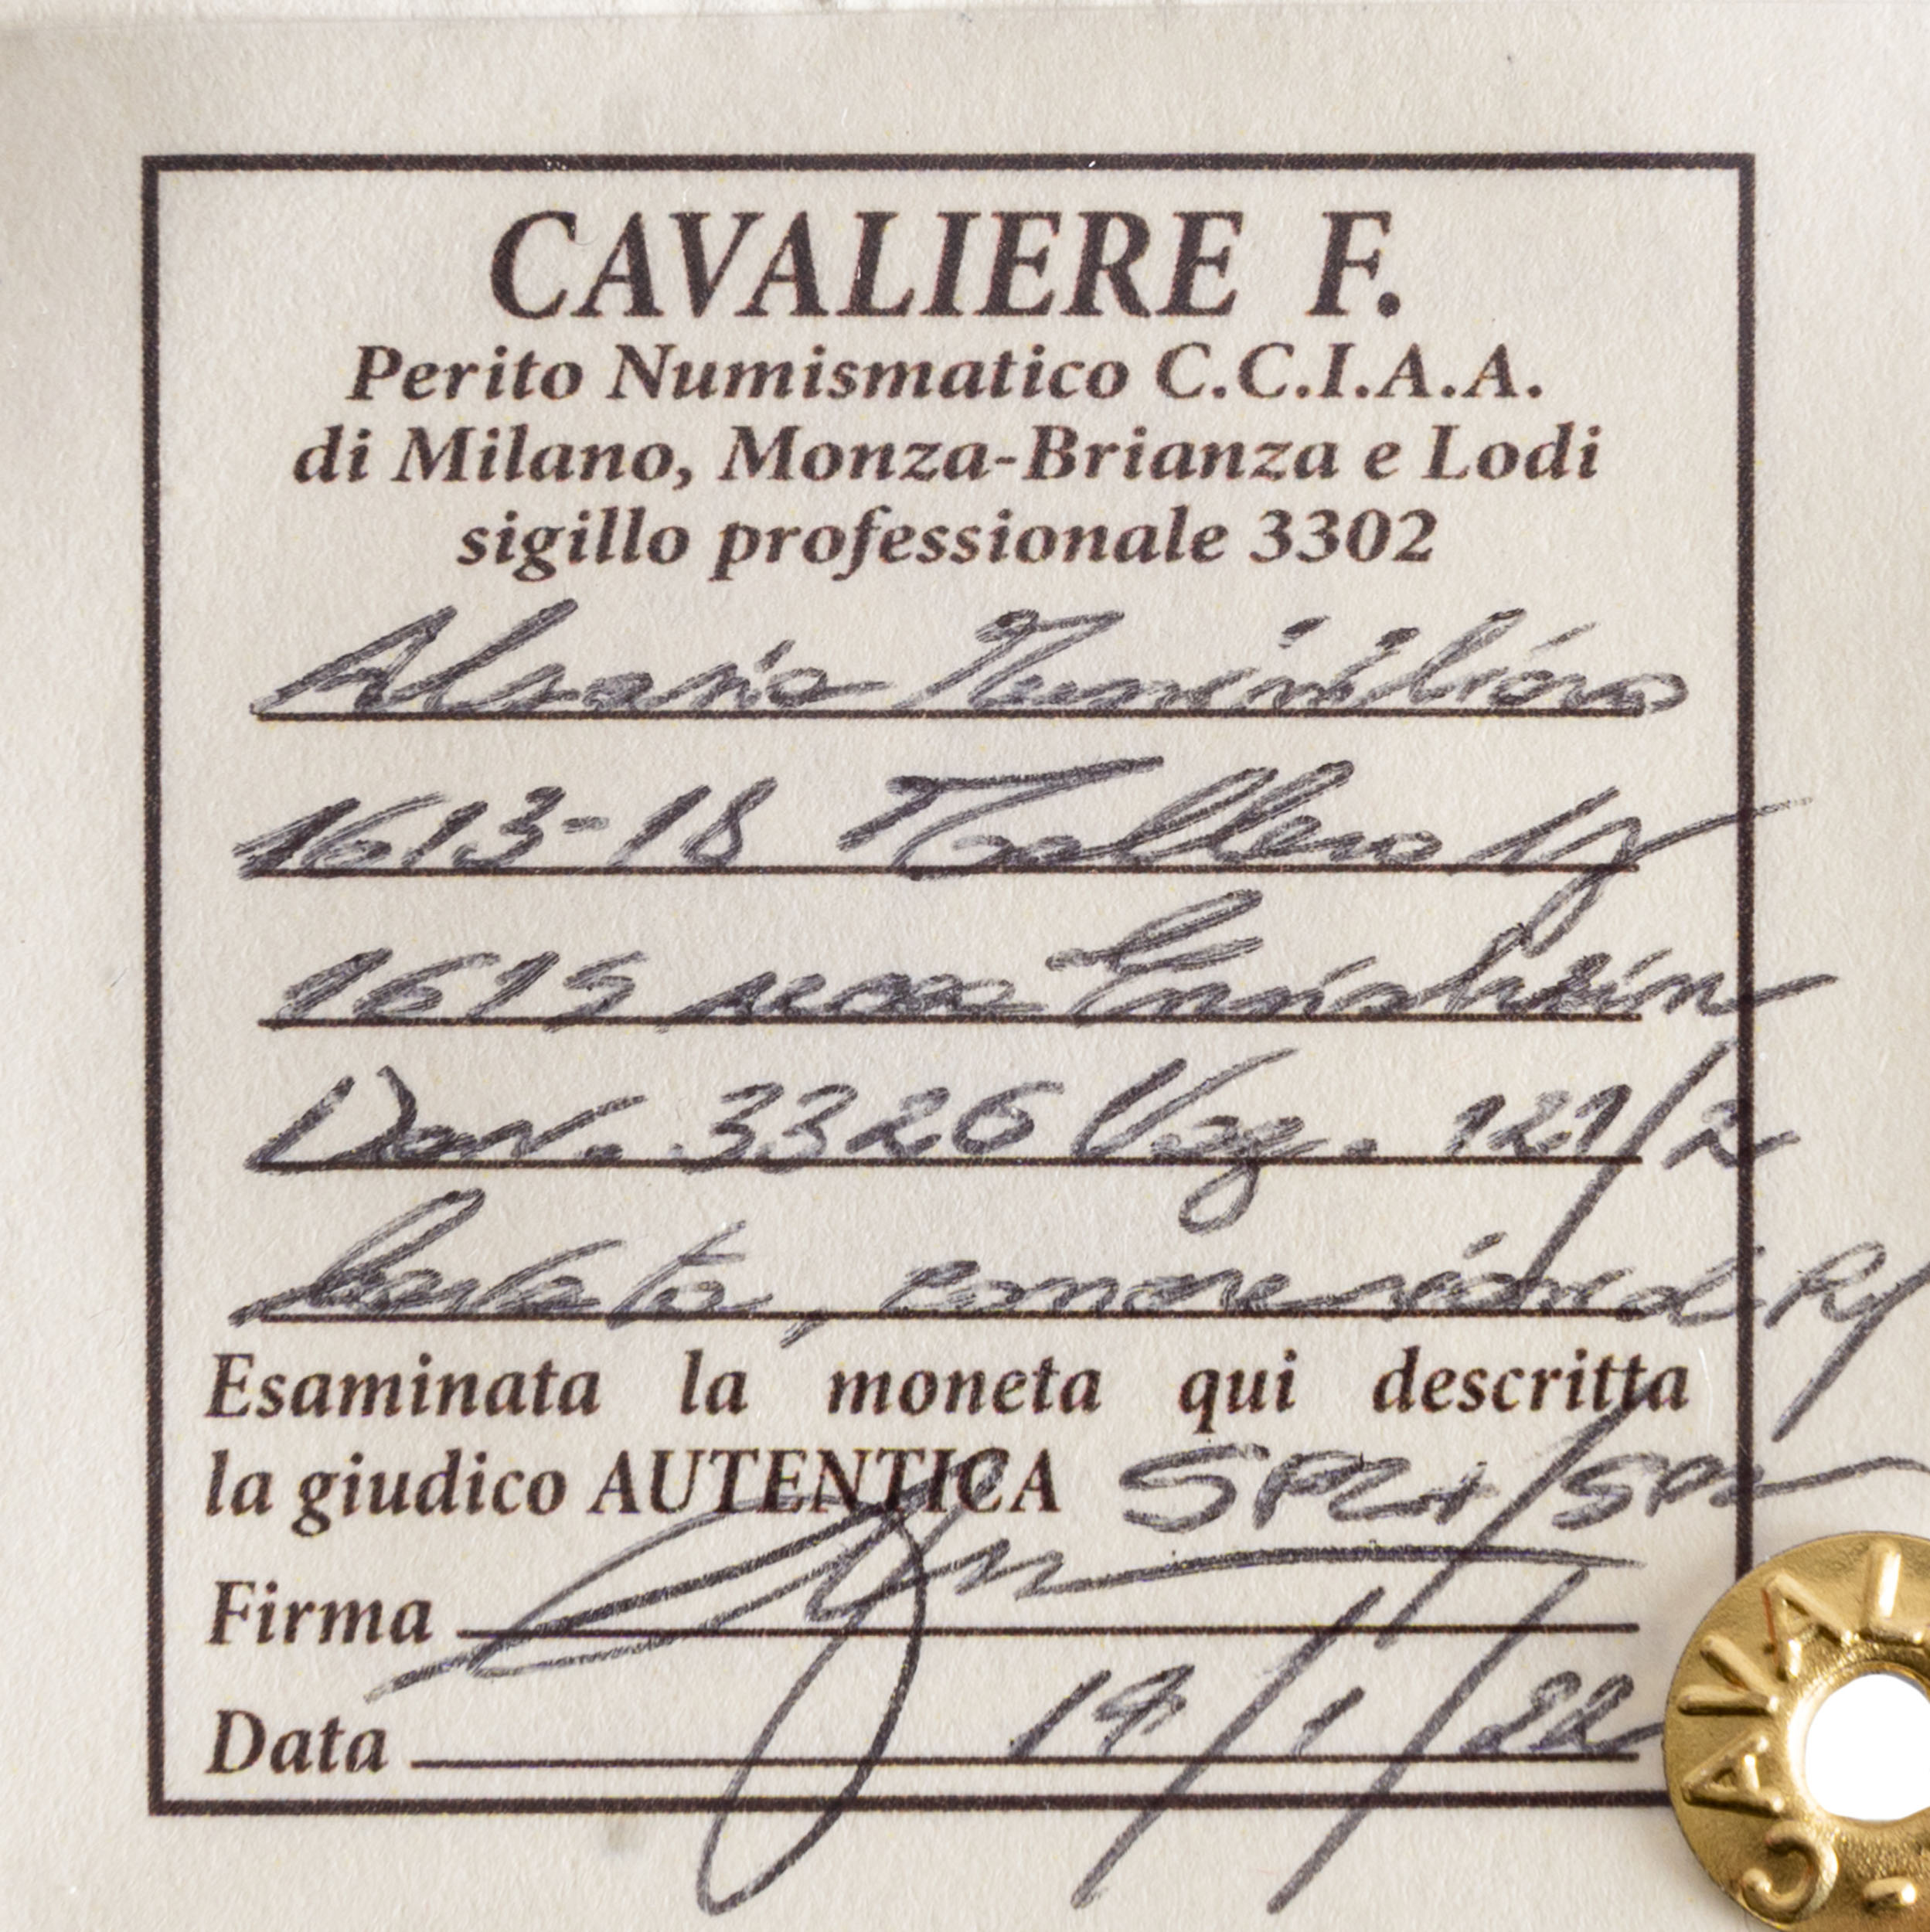 CAVALIERE F.
Perito Numismatico C.C.I.A.A.
di Milano, Monza-Brianza e Lodi
sigillo professionale 3302
Alsazia
1613-18 Tallero
1615 zecca Ensisheim
Dav. 3326 Vog. 121/2
Lavata,
Esaminata la moneta qui descritta
la giudico AUTENTICA SPL+/SPL
Firma
Data 19/1/22
CAVALI